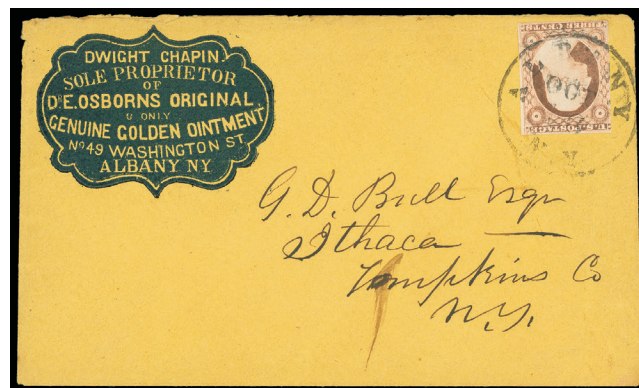 DWIGHT CHAPIN.
SOLE PROPRIETOR
OF
DR E. OSBORNS ORIGINAL
& ONLY
GENUINE GOLDEN OINTMENT
No 49 WASHINGTON ST
ALBANY NY
ALBANY
OCT
N.Y.
G. D. Bull Esqr
Ithaca
Tompkins Co
N.Y.